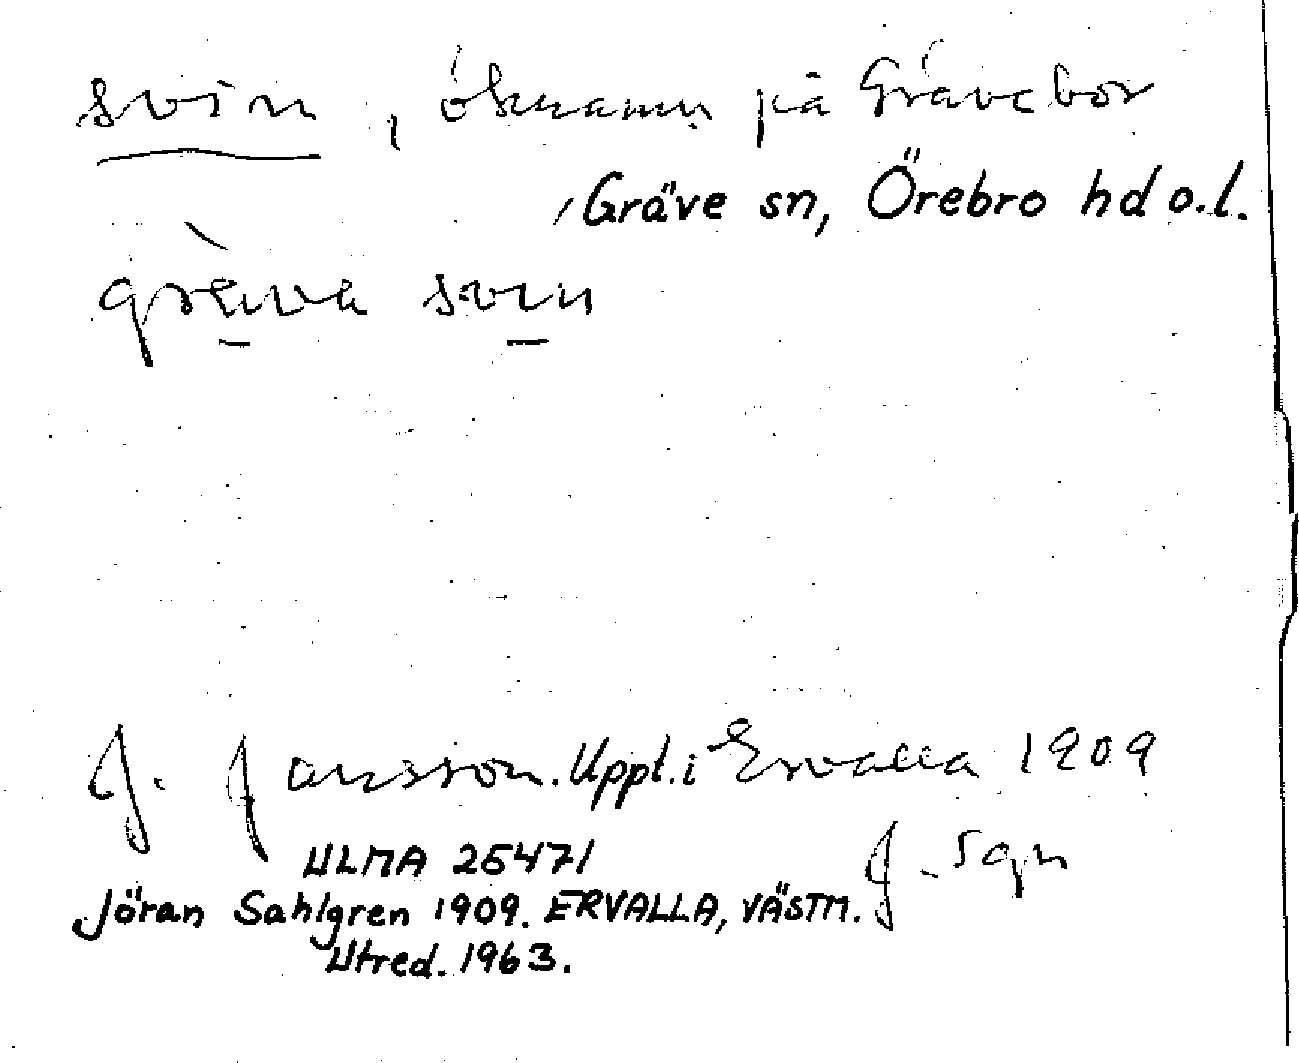 svin, öknamn på Grävebor
, Gräve sn, Örebro hd o.l.
gräva svin
J. Jansson. Uppl. i Ervalla 1909
ULMA 25471 J. Sgn
Jöran Sahlgren 1909. ERVALLA, VÄSTM.
Utred. 1963.